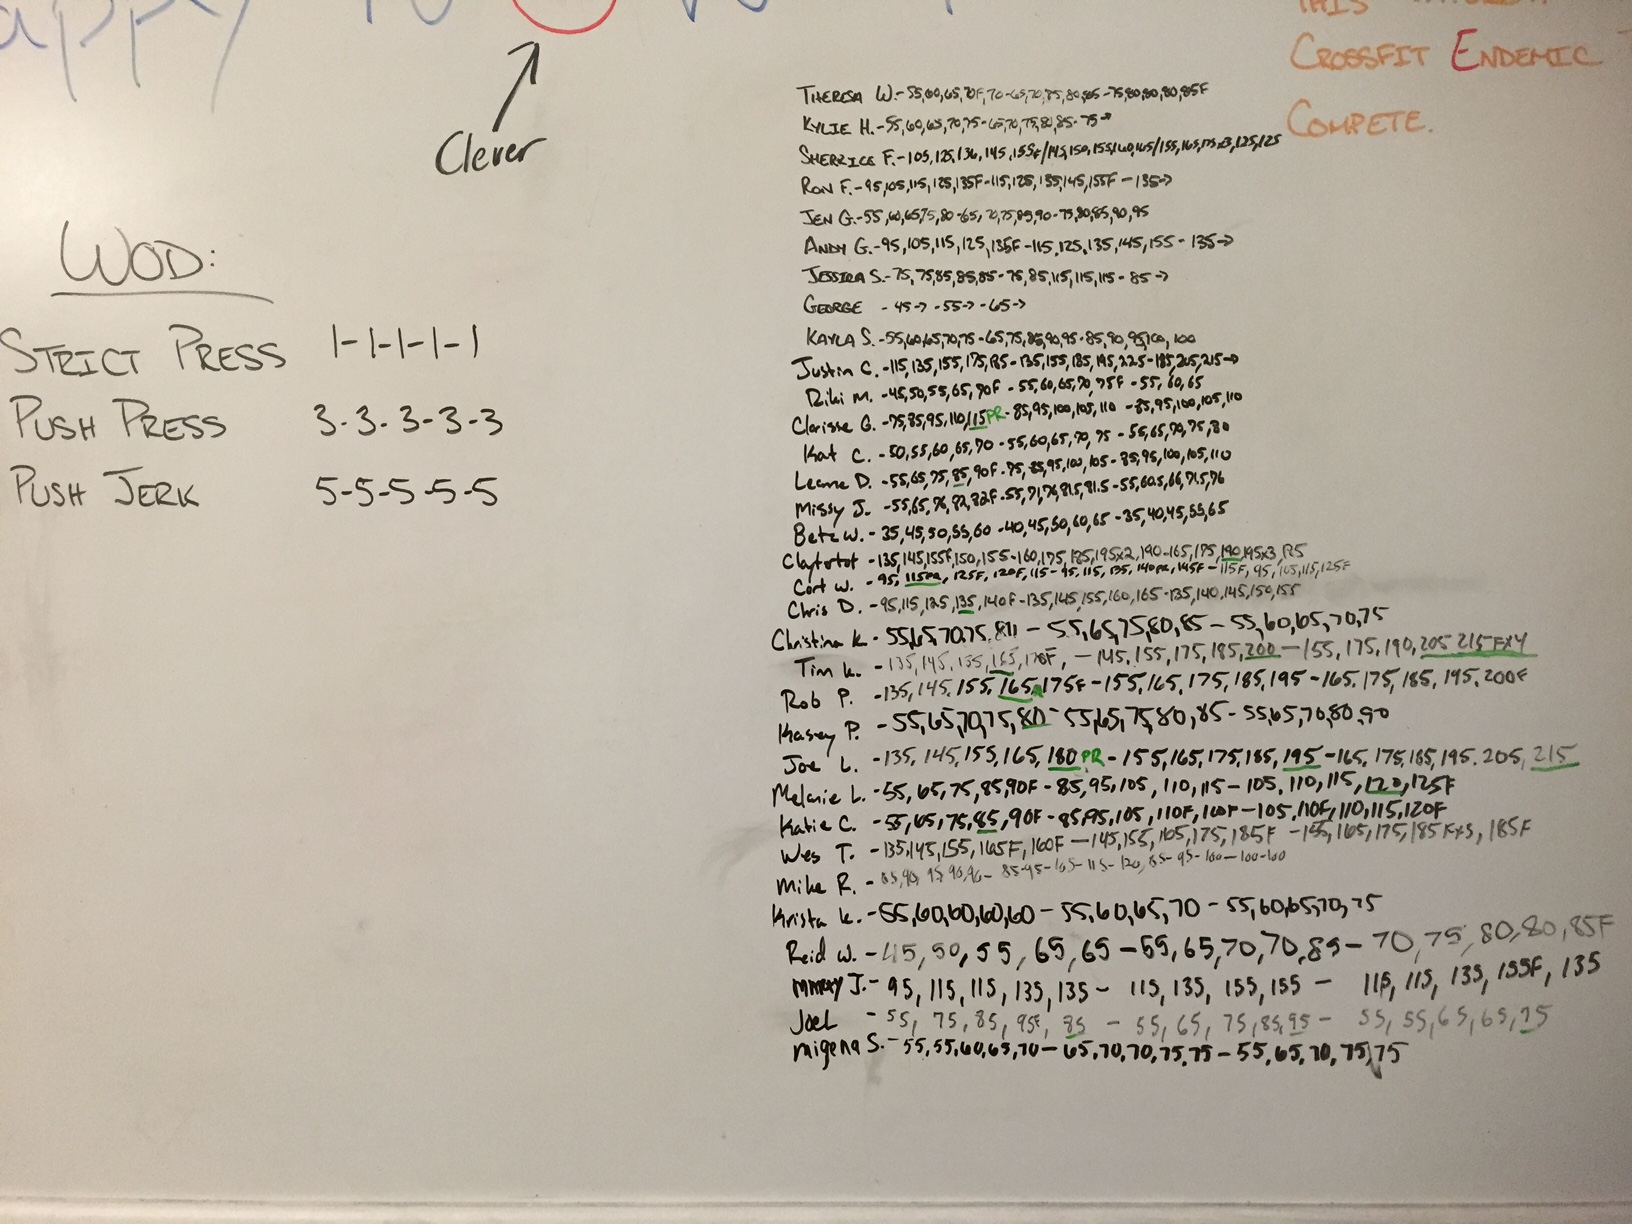 THIS
CROSSFIT ENDEMIC
COMPETE.
Clever
WOD:
STRICT PRESS 1-1-1-1-1
PUSH PRESS 3-3-3-3-3
PUSH JERK 5-5-5-5-5
THERESA W.-55,60,65,70F,70-65,70,75,80,85-75,80,80,80,85F
KYLIE H.-55,60,65,70,75-65,70,75,80,85-75→
SHERRICE F.-105,125,136,145,155F/145,150,155,160,165/155,165,175x3,125,125
RON F.-95,105,115,125,135F-115,125,135,145,155F-135→
JEN G.-55,60,65,75,80-65,70,75,85,90-75,80,85,90,95
ANDY G.-95,105,115,125,135F-115,125,135,145,155-135→
JESSICA S.-75,75,85,85,85-75,85,115,115,115-85→
GEORGE -45→ -55→ -65→
KAYLA S.-55,60,65,70,75-65,75,85,90,95-85,90,95,100,100
Justin C.-115,135,155,175,185-135,155,185,195,225-185,205,215→
Riki M.-45,50,55,65,70F-55,60,65,70,75F-55,60,65
Clarisse G.-75,85,95,110,115PR-85,95,100,105,110-85,95,100,105,110
Kat C.-50,55,60,65,70-55,60,65,70,75-55,65,70,75,80
Leanne D.-55,65,75,85,90F-75,85,95,100,105-85,95,100,105,110
Missy J.-55,65,76,82,82F-55,71,76,81.5,81.5-55,60.5,66,71.5,76
Beta W.-35,45,50,55,60-40,45,50,60,65-35,40,45,55,65
Claytortot-135,145,155F,150,155-160,175,185,195x2,190-165,175,190,195x3,175
Cort W.-95,115PR,125F,120F,115-95,115,135,140PR,145F-115F,95,105,115,125F
Chris D.-95,115,125,135,140F-135,145,155,160,165-135,140,145,150,155
Christina K.-55,65,70,75,80-55,65,75,80,85-55,60,65,70,75
Tim K.-135,145,155,165,170F,-145,155,175,185,200-155,175,190,205,215Fx4
Rob P.-135,145,155,165,175F-155,165,175,185,195-165,175,185,195,200F
Kasey P.-55,65,70,75,80-55,65,75,80,85-55,65,70,80,90
Joe L.-135,145,155,165,180PR-155,165,175,185,195-165,175,185,195,205,215
Melanie L.-55,65,75,85,90F-85,95,105,110,115-105,110,115,120,125F
Katie C.-55,65,75,85,90F-85,95,105,110F,110F-105,110F,110,115,120F
Wes T.-135,145,155,165F,160F-145,155,165,175,185F-155,165,175,185Fx3,185F
Mike R.-85,90,95,90,90-85-95-105-115-120,85-95-100-100-100
Krista K.-55,60,60,60,60-55,60,65,70-55,60,65,70,75
Reid W.-45,50,55,65,65-55,65,70,70,85-70,75,80,80,85F
J.-95,115,115,135,135-115,135,155,155-115,115,135,155F,135
Joel -55,75,85,95F,85-55,65,75,85,95-55,55,65,65,75
migena S.-55,55,60,65,70-65,70,70,75,75-55,65,70,75,75